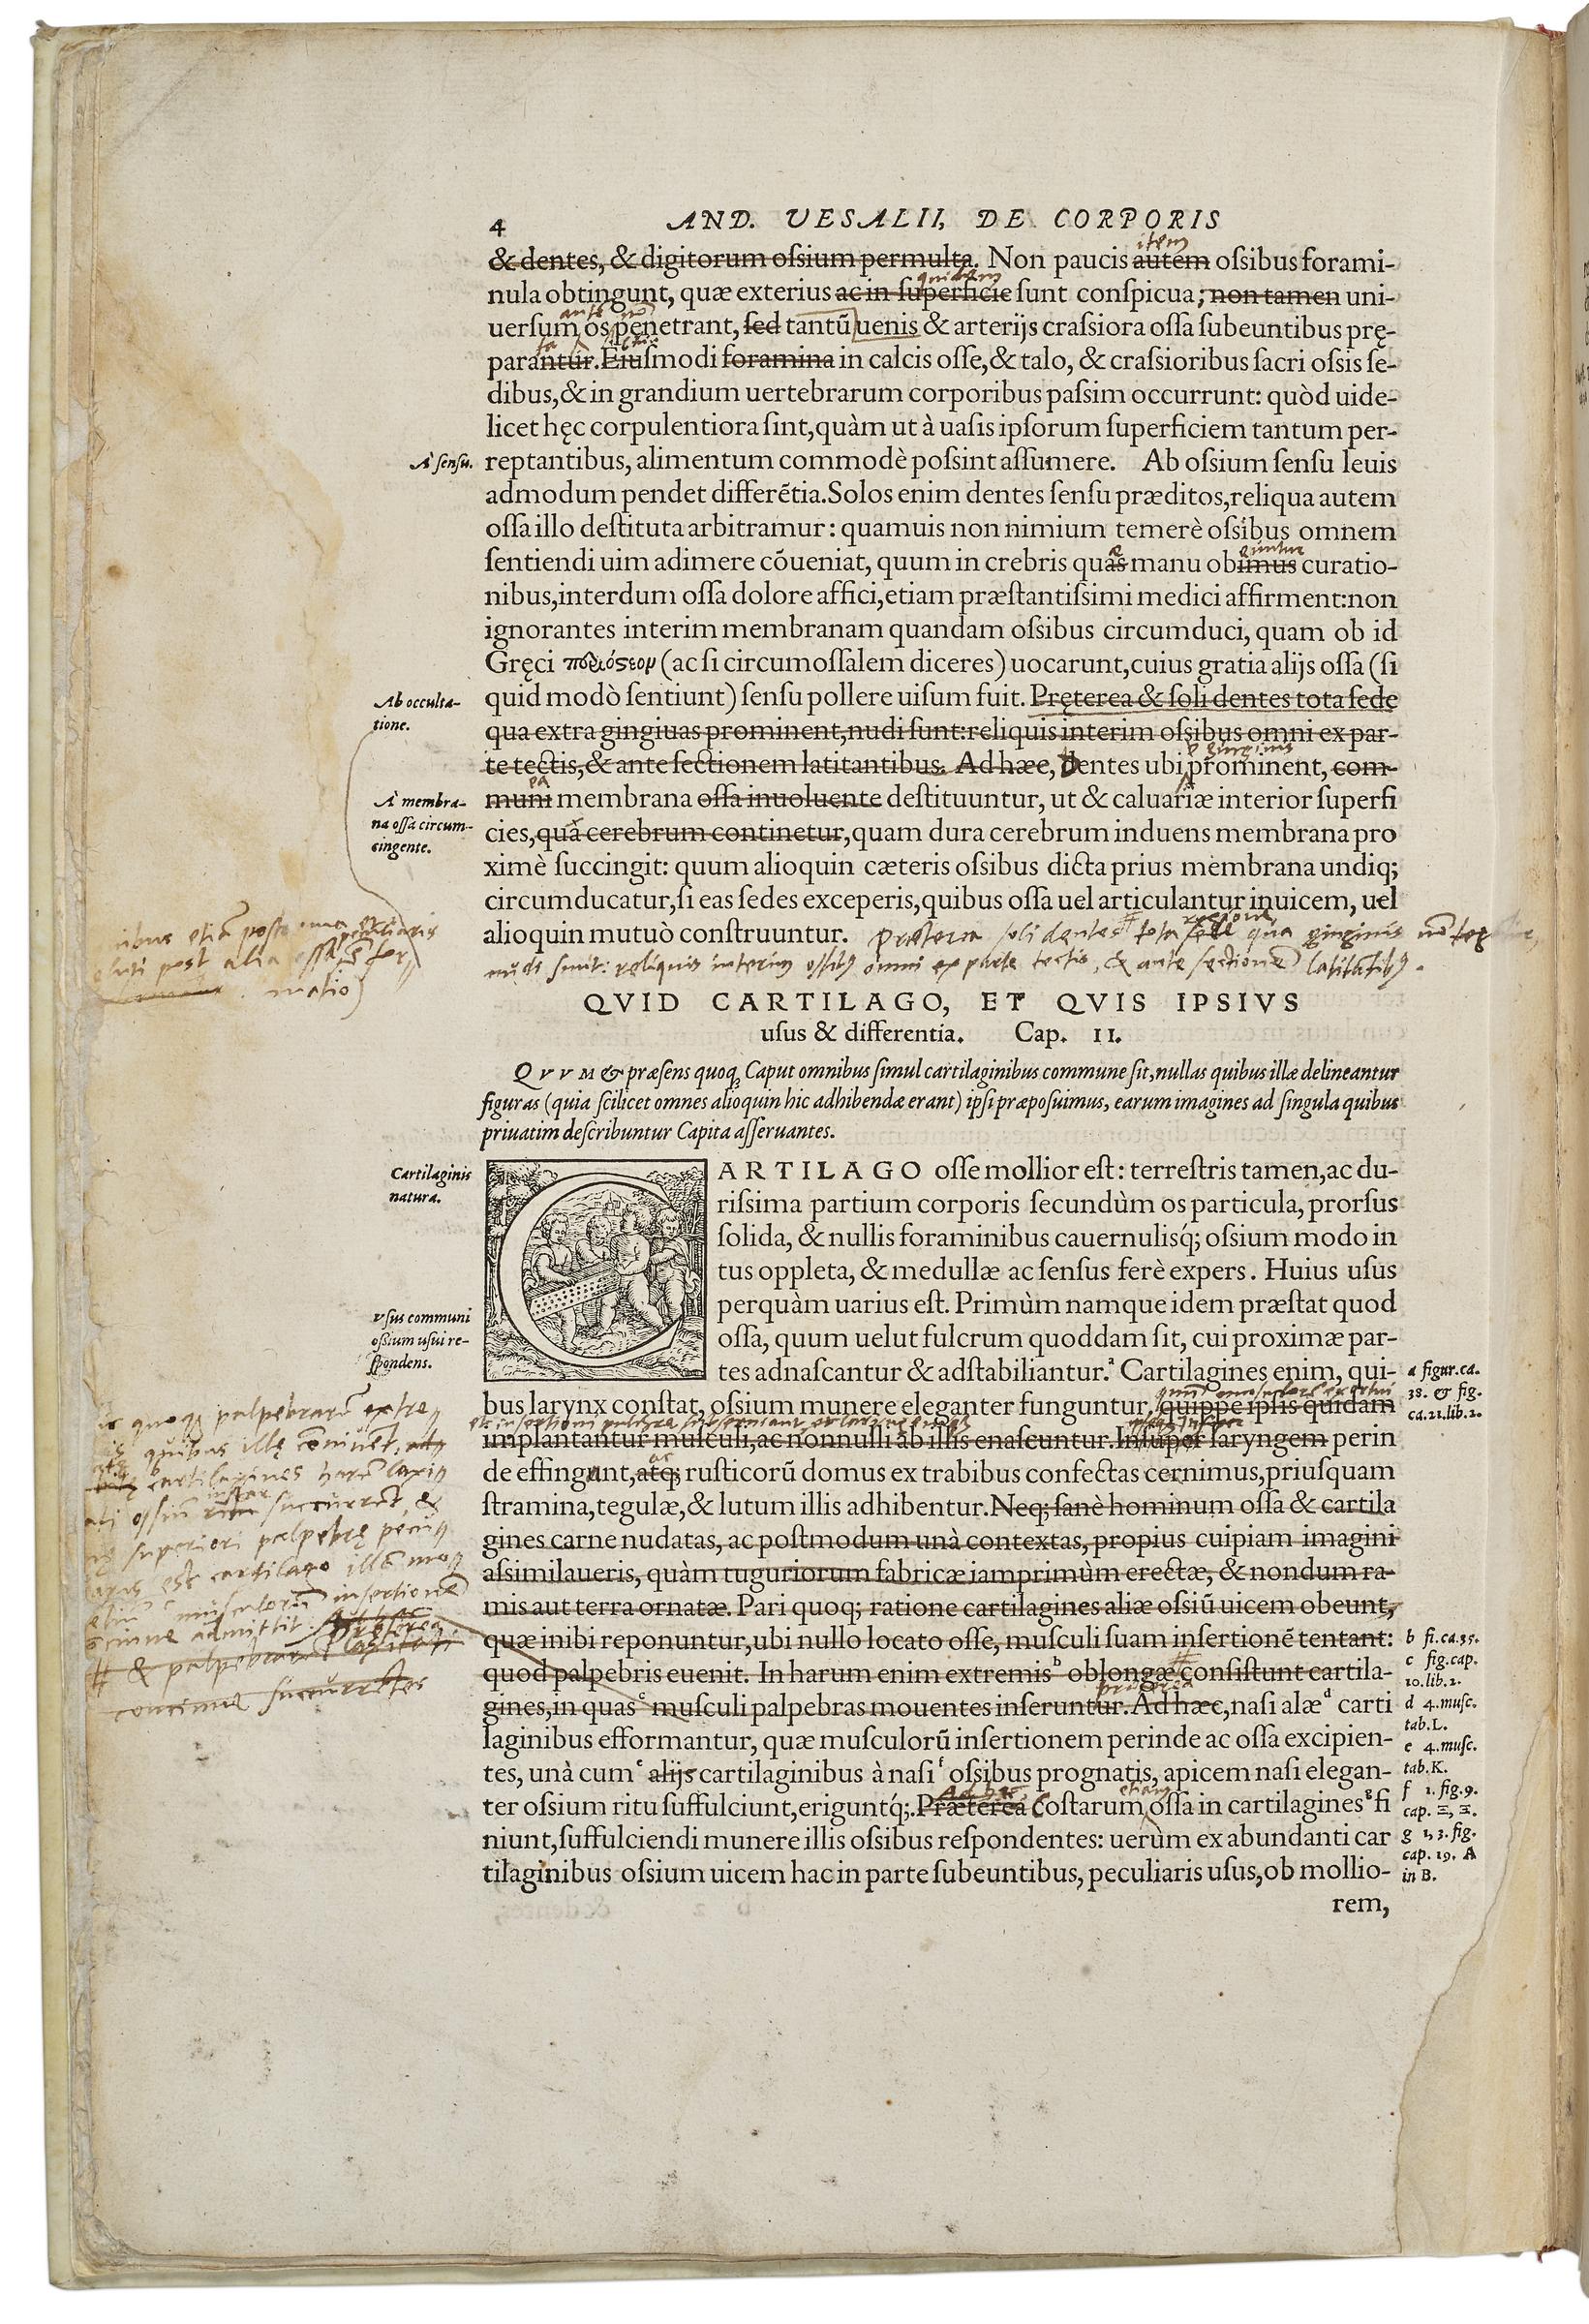 4 AND. VESALII, DE CORPORIS
& dentes, & digitorum oſsium permulta. Non paucis autem oſsibus forami-
item
nula obtingunt, quæ exterius ac in ſuperficie ſunt conſpicua; non tamen uni-
quidem
uerſum os penetrant, ſed tantũ uenis & arterijs craſsiora oſſa ſubeuntibus prę-
parantur. Eiuſmodi foramina in calcis oſſe, & talo, & craſsioribus ſacri oſsis ſe-
dibus, & in grandium uertebrarum corporibus paſsim occurrunt: quòd uide-
licet hęc corpulentiora ſint, quàm ut à uaſis ipſorum ſuperficiem tantum per-
A' ſenſu.
reptantibus, alimentum commodè poſsint aſſumere. Ab oſsium ſenſu leuis
admodum pendet differẽtia. Solos enim dentes ſenſu præditos, reliqua autem
oſſa illo deſtituta arbitramur: quamuis non nimium temerè oſsibus omnem
ſentiendi uim adimere cõueniat, quum in crebris quas manu obimus curatio-
æ euntur
nibus, interdum oſſa dolore affici, etiam præſtantiſsimi medici affirment: non
ignorantes interim membranam quandam oſsibus circumduci, quam ob id
Gręci περιόστεον (ac ſi circumoſſalem diceres) uocarunt, cuius gratia alijs oſſa (ſi
Ab occulta-
tione.
quid modò ſentiunt) ſenſu pollere uiſum fuit. Pręterea & ſoli dentes tota ſede
qua extra gingiuas prominent, nudi ſunt: reliquis interim oſsibus omni ex par-
te tectis, & ante ſectionem latitantibus. Ad hæc, dentes ubi prominent, com-
e gingiuis
A' membra-
na oſſa circum-
cingente.
muni membrana oſſa inuoluente deſtituuntur, ut & caluariæ interior ſuperfi
ea
cies, qua cerebrum continetur, quam dura cerebrum induens membrana pro
ximè ſuccingit: quum alioquin cæteris oſsibus dicta prius membrana undiq;
circumducatur, ſi eas ſedes exceperis, quibus oſſa uel articulantur inuicem, uel
alioquin mutuò conſtruuntur. Præterea soli dentes tota sede qua gingiuis nõ
regione
nudi sunt: reliquis interim ossibus omni ex parte tectis, & ante sectionẽ latitatibus.
post alia ossa
QVID CARTILAGO, ET QVIS IPSIVS
uſus & differentia. Cap. II.
QVVM & præſens quoq; Caput omnibus ſimul cartilaginibus commune ſit, nullas quibus illæ delineantur
figuras (quia ſcilicet omnes alioquin hic adhibendæ erant) ipſi præpoſuimus, earum imagines ad ſingula quibus
priuatim deſcribuntur Capita aſſeruantes.
Cartilaginis
natura.
CARTILAGO oſſe mollior eſt: terreſtris tamen, ac du-
riſsima partium corporis ſecundùm os particula, prorſus
ſolida, & nullis foraminibus cauernulisq́; oſsium modo in
tus oppleta, & medullæ ac ſenſus ferè expers. Huius uſus
Vſus communi
oſsium uſui re-
ſpondens.
perquàm uarius eſt. Primùm namque idem præſtat quod
oſſa, quum uelut fulcrum quoddam ſit, cui proximæ par-
tes adnaſcantur & adſtabiliantur.ᵃ Cartilagines enim, qui-
a figur. ca.
38. & fig.
ca. 21. lib. 2.
bus larynx conſtat, oſsium munere eleganter funguntur, quippe ipſis quidam
implantantur muſculi, ac nonnulli ab illis enaſcuntur. Inſuper laryngem perin
de effingunt, atq; ruſticorũ domus ex trabibus confectas cernimus, priuſquam
ac
ſtramina, tegulæ, & lutum illis adhibentur. Neq; ſanè hominum oſſa & cartila
gines carne nudatas, ac poſtmodum unà contextas, propius cuipiam imagini
aſsimilaueris, quàm tuguriorum fabricæ iamprimùm erectæ, & nondum ra-
mis aut terra ornatæ. Pari quoq; ratione cartilagines aliæ oſsiũ uicem obeunt,
quæ inibi reponuntur, ubi nullo locato oſſe, muſculi ſuam inſertionẽ tentant:
quod palpebris euenit. In harum enim extremisᵇ oblongæ conſiſtunt cartila-
gines, in quasᶜ muſculi palpebras mouentes inſeruntur. Ad hæc, naſi alæᵈ carti
præterea
laginibus efformantur, quæ muſculorũ inſertionem perinde ac oſſa excipien-
tes, unà cumᵉ alijs cartilaginibus à naſiᶠ oſsibus prognatis, apicem naſi elegan-
ter oſsium ritu ſuffulciunt, eriguntq́;. Præterea coſtarum oſſa in cartilaginesᵍ fi
Ad hæc etiam
niunt, ſuffulciendi munere illis oſsibus reſpondentes: uerùm ex abundanti car
tilaginibus oſsium uicem hac in parte ſubeuntibus, peculiaris uſus, ob mollio-
rem,
quoq; palpebrarũ extre
quibus illę cõniuẽt,
cartilagines harũ laxi
ossiũ instar succurrẽt, &
superiori palpebrę
est cartilago illã
musculorũ insertionẽ
admittit. Ad hæc
præterea
# & palpebrarũ
concinne succurrẽtes
b fi. ca. 35.
c fig. cap.
10. lib. 2.
d 4. muſc.
tab. L.
e 4. muſc.
tab. K.
f 1. fig. 9.
cap. Ξ, Ξ.
g 1, 3. fig.
cap. 19. A
in B.